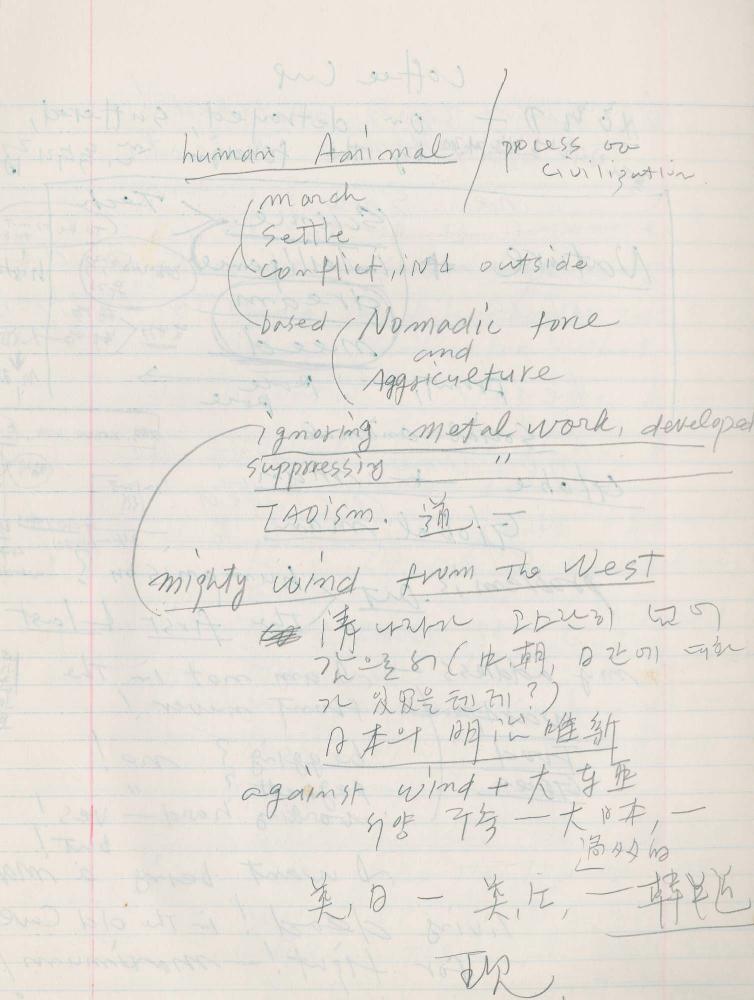 human Animal / process on
civilization
march
settle
conflict, in & outside
based Nomadic tone
and
Aggriculture
ignoring metal work, developed
suppressing "
TAOism. 道. —
mighty wind from the West
淸나라가 넘어
감으로써 (中朝, 日간에
가 있었을텐데?)
日本의 明治 唯新
against wind + 大東亞
서양 구축 — 大日本, —
美, 日 — 美, —